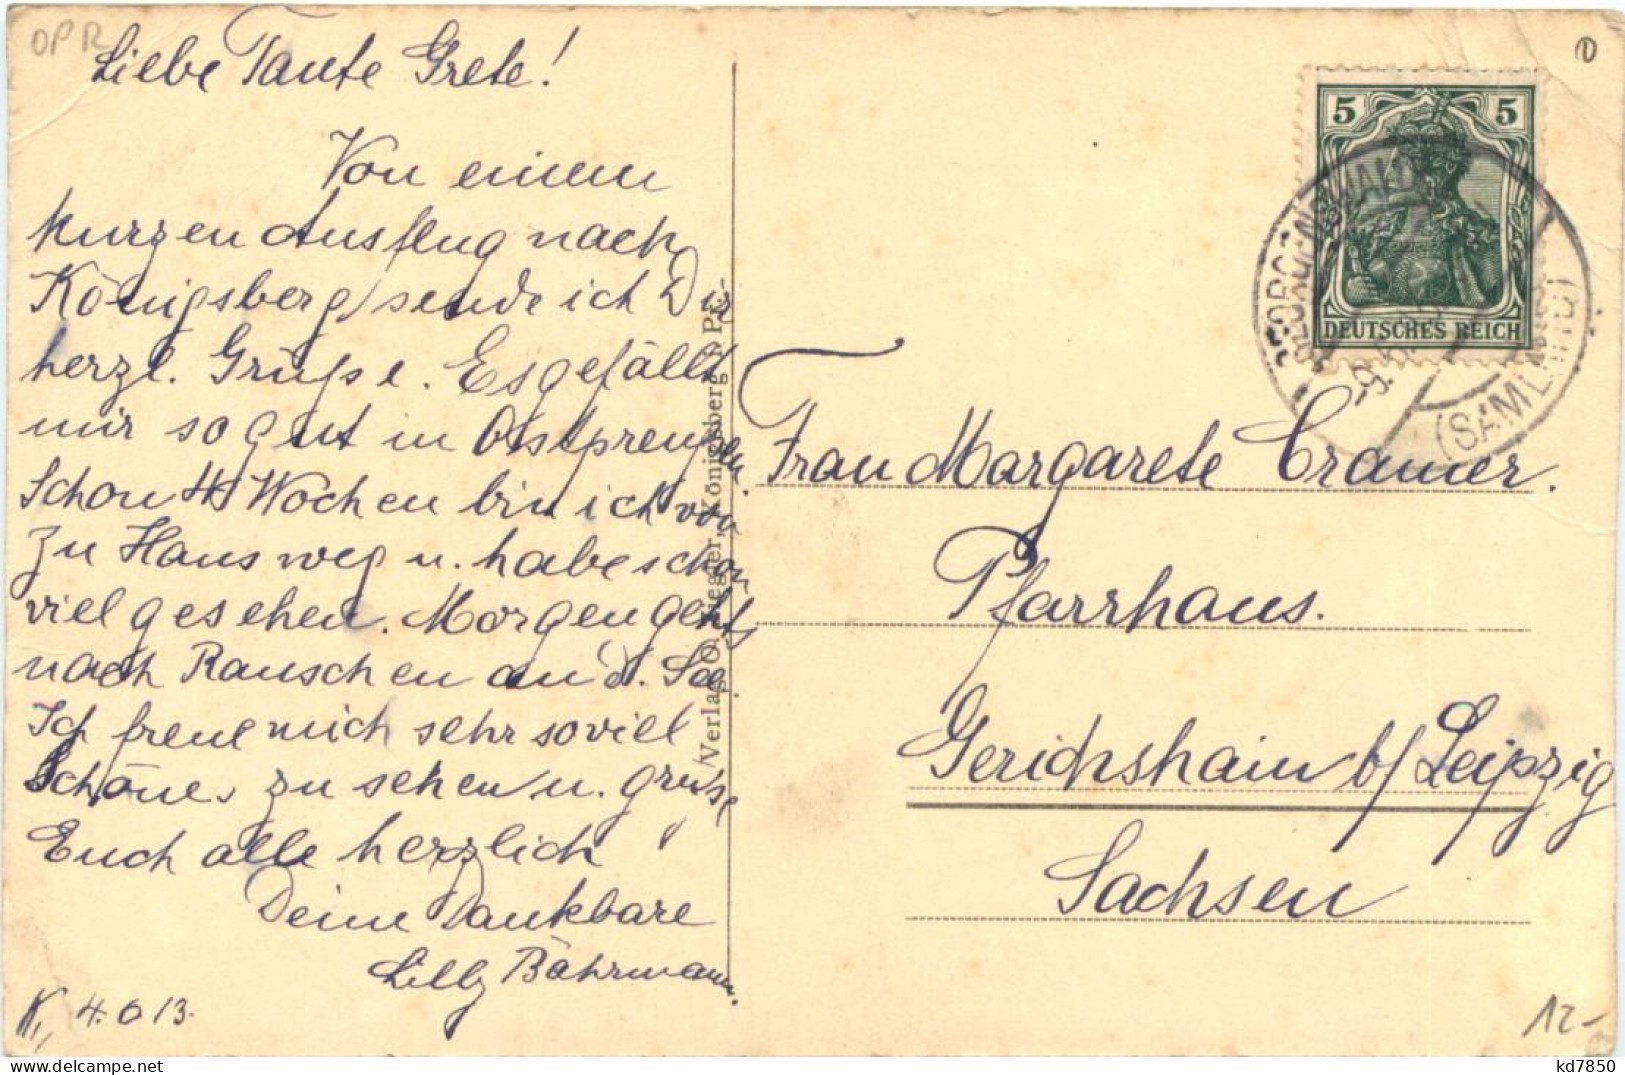 OPR
Liebe Tante Grete!
Von einem
kurzen Ausflug nach
Königsberg sende ich Dir
herzl. Grüße. Es gefällt
mir so gut in Ostpreußen.
Schon 4 Wochen bin ich von
zu Haus weg u. habe schon
viel gesehen. Morgen gehts
nach Rauschen an d. See.
Ich freue mich sehr so viel
Schönes zu sehen u. grüße
Euch alle herzlich
Deine Dankbare
Lilly Bährmann.
K, 4.6 13.
Verlag O. Ziegler, Königsberg i. Pr.
5 5
DEUTSCHES REICH
GEORGENSWALDE
(SAMLAND)
Frau Margarete Cramer.
Pfarrhaus.
Gerichshain b/ Leipzig
Sachsen
12-
kd7850